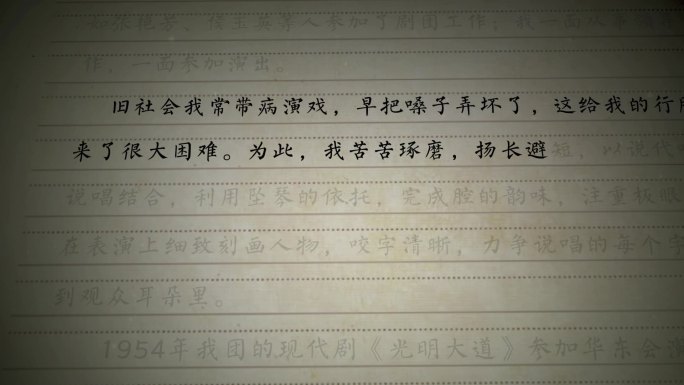 如张艳芳、侯玉英等人参加了剧团工作；我一面从事领导
作，一面参加演出。
旧社会我常带病演戏，早把嗓子弄坏了，这给我的行
来了很大困难。为此，我苦苦琢磨，扬长避短，以说代
说唱结合，利用坠琴的依托，完成腔的韵味，注重板眼
在表演上细致刻画人物，咬字清晰，力争说唱的每个字
到观众耳朵里。
1954年我团的现代剧《光明大道》参加华东会演